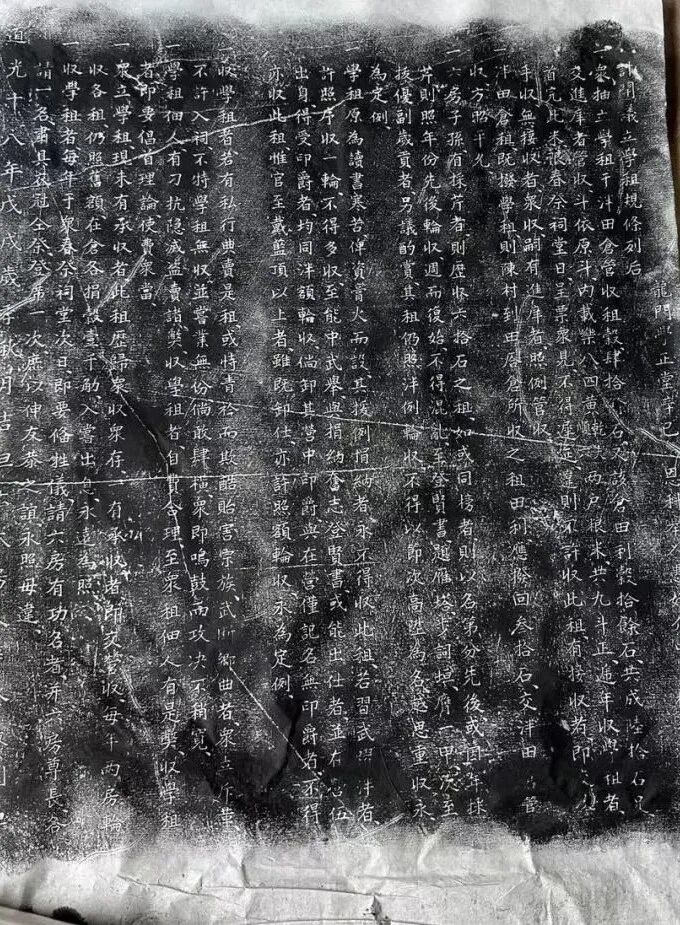 計開義立學租規條列后
一衆抽立學租于洋田倉管收租穀肆拾石又該倉田利穀拾餘石共成陸拾石足
交進庠者管收斗依原斗內載樂八四黃順二乾次兩戶根米共九斗正遞年收學租者
首完此米糧春祭祠堂日呈票衆見不得遲延違則不許收此租有接收者即
手收無接收者衆收嗣有進庠者照例管收
一洋田倉租既撥學租則陳村到田唇倉所收之租田利應撥回叁拾石交洋田管
收方照十九
一六房子孫有採芹者則歷收六拾石之租如或同榜者則以名第分先後或同年採
芹則照年份先後輪收週而復始不得混亂至登賢書題雁塔步詞填膺一甲次至
拔優副歲貢者另議酌賞其租仍照洋例輪收不得以即次高陞為名越思重收永
為定例
一學租原為讀書寒苦俾資膏火而設其援例捐納者永不得收此租若習武者
許照序收一輪不得多收至能中武舉與捐納奮志登賢書或能出仕者並有志伍
出身得受印爵者均同洋額輪收倘卸其營中印爵與在營僅記名無印爵者不得
亦收此租惟官至戴藍頂以上者雖既卸仕亦許照額輪收永為定例
一收學租者若有私行典賣是租或恃青衿而欺酷貽害宗族武斷鄉曲者衆斥革
不許入祠不特學租無收並嘗業無份倘敢肆橫衆即鳴鼓而攻決不稍寬
一學租佃人有刁抗隱滅盜賣諸弊收學租者自費合理至衆租佃人有是弊收學租
者即要倡首理論使費衆當
一衆立學租現未有承收者此租歷歸衆收衆存有承收者即交管收每年兩房輪
收各租仍照舊額在倉各捐穀壹千觔入嘗出息永遠為照
一收學租者每年于衆春祭祠堂次日即要備牲儀請六房有功名者并六房尊長各
請一名肅具衣冠仝祭登席一次庶以伸友恭之誼永照毋違
道光十八年戊戌歲月吉旦